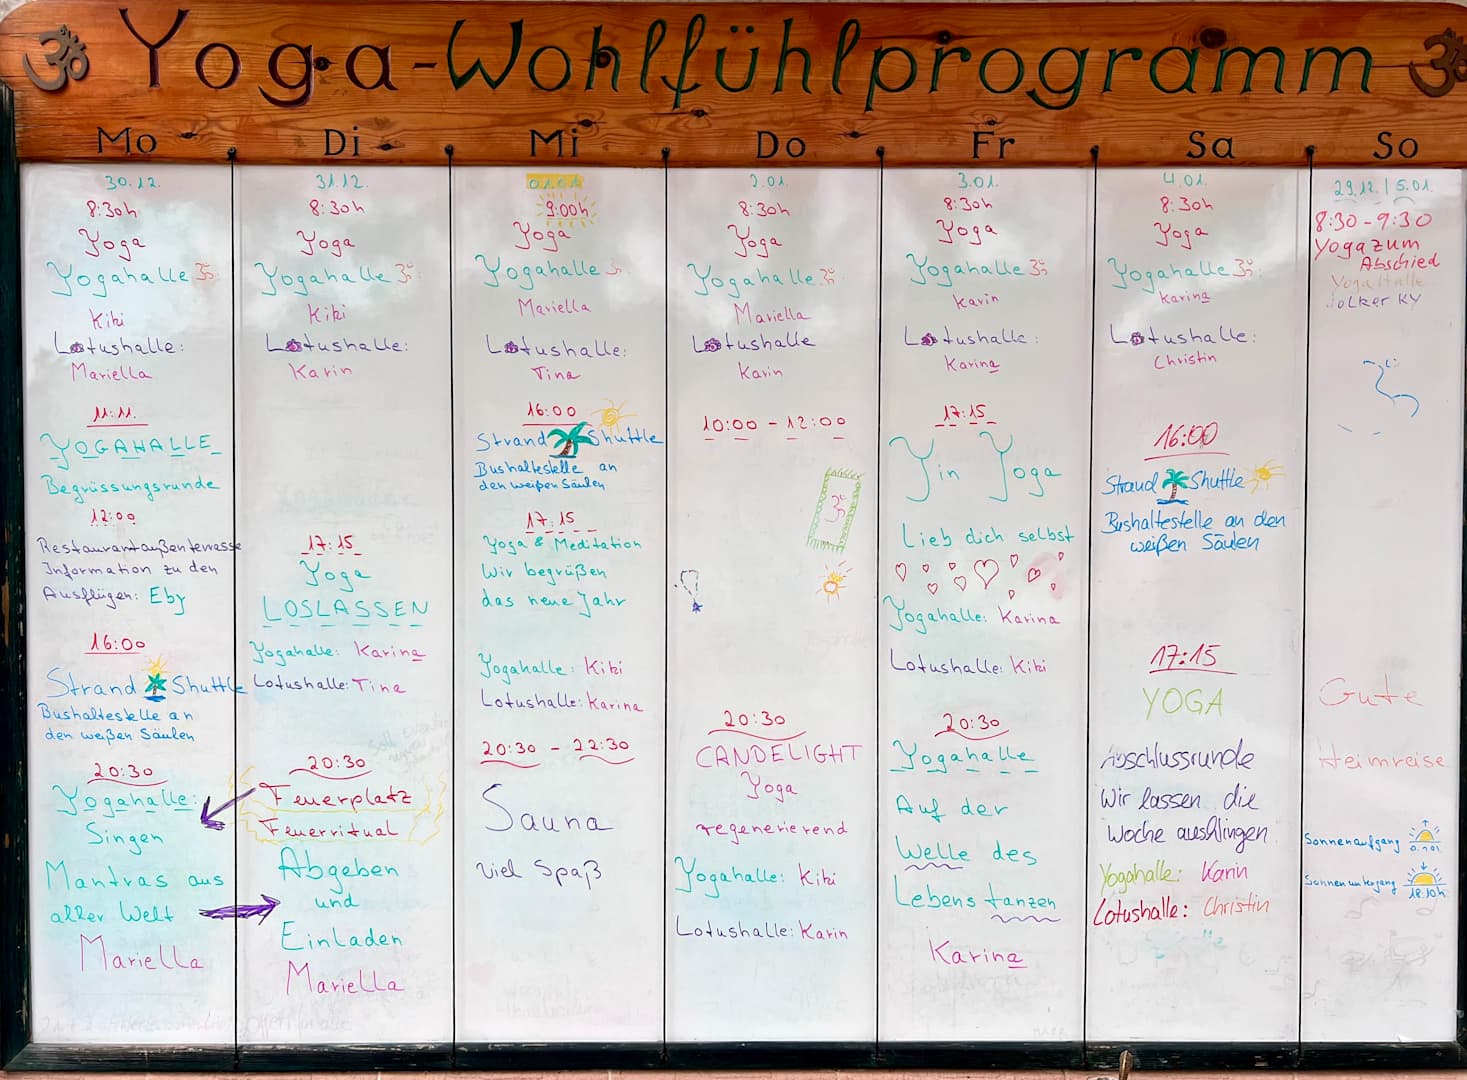 Yoga-Wohlfühlprogramm
Mo
30.12.
8:30h
Yoga
Yogahalle ॐ
Kiki
Lotushalle:
Mariella
11:11.
YOGAHALLE
Begrüssungsrunde
12:00
Restaurantaußenterrasse
Information zu den
Ausflügen: Eby
16:00
Strand Shuttle
Bushaltestelle an
den weißen Säulen
20:30
Yogahalle:
Singen
Mantras aus
aller Welt
Mariella
Di
31.12.
8:30h
Yoga
Yogahalle ॐ
Kiki
Lotushalle:
Karin
17:15
Yoga
LOSLASSEN
Yogahalle: Karina
Lotushalle: Tina
20:30
Feuerplatz
Feuerritual
Abgeben
und
Einladen
Mariella
Mi
01.01.
9:00h
Yoga
Yogahalle
Mariella
Lotushalle:
Tina
16:00
Strand Shuttle
Bushaltestelle an
den weißen Säulen
17:15
Yoga & Meditation
Wir begrüßen
das neue Jahr
Yogahalle: Kiki
Lotushalle: Karina
20:30 - 22:30
Sauna
viel Spaß
Do
2.01.
8:30h
Yoga
Yogahalle ॐ
Mariella
Lotushalle
Karin
10:00 - 12:00
ॐ
20:30
CANDELIGHT
Yoga
regenerierend
Yogahalle: Kiki
Lotushalle: Karin
Fr
3.01.
8:30h
Yoga
Yogahalle ॐ
Karin
Lotushalle:
Karina
17:15
Yin Yoga
Lieb dich selbst
Yogahalle: Karina
Lotushalle: Kiki
20:30
Yogahalle
Auf der
Welle des
Lebens tanzen
Karina
Sa
4.01.
8:30h
Yoga
Yogahalle ॐ
Karina
Lotushalle:
Christin
16:00
Strand Shuttle
Bushaltestelle an den
weißen Säulen
17:15
YOGA
Abschlussrunde
Wir lassen die
Woche ausklingen
Yogahalle: Karin
Lotushalle: Christin
So
29.12. | 5.01.
8:30-9:30
Yoga zum
Abschied
Yoga Halle
Gute
Heimreise
Sonnenaufgang
Sonnenuntergang
18:10h